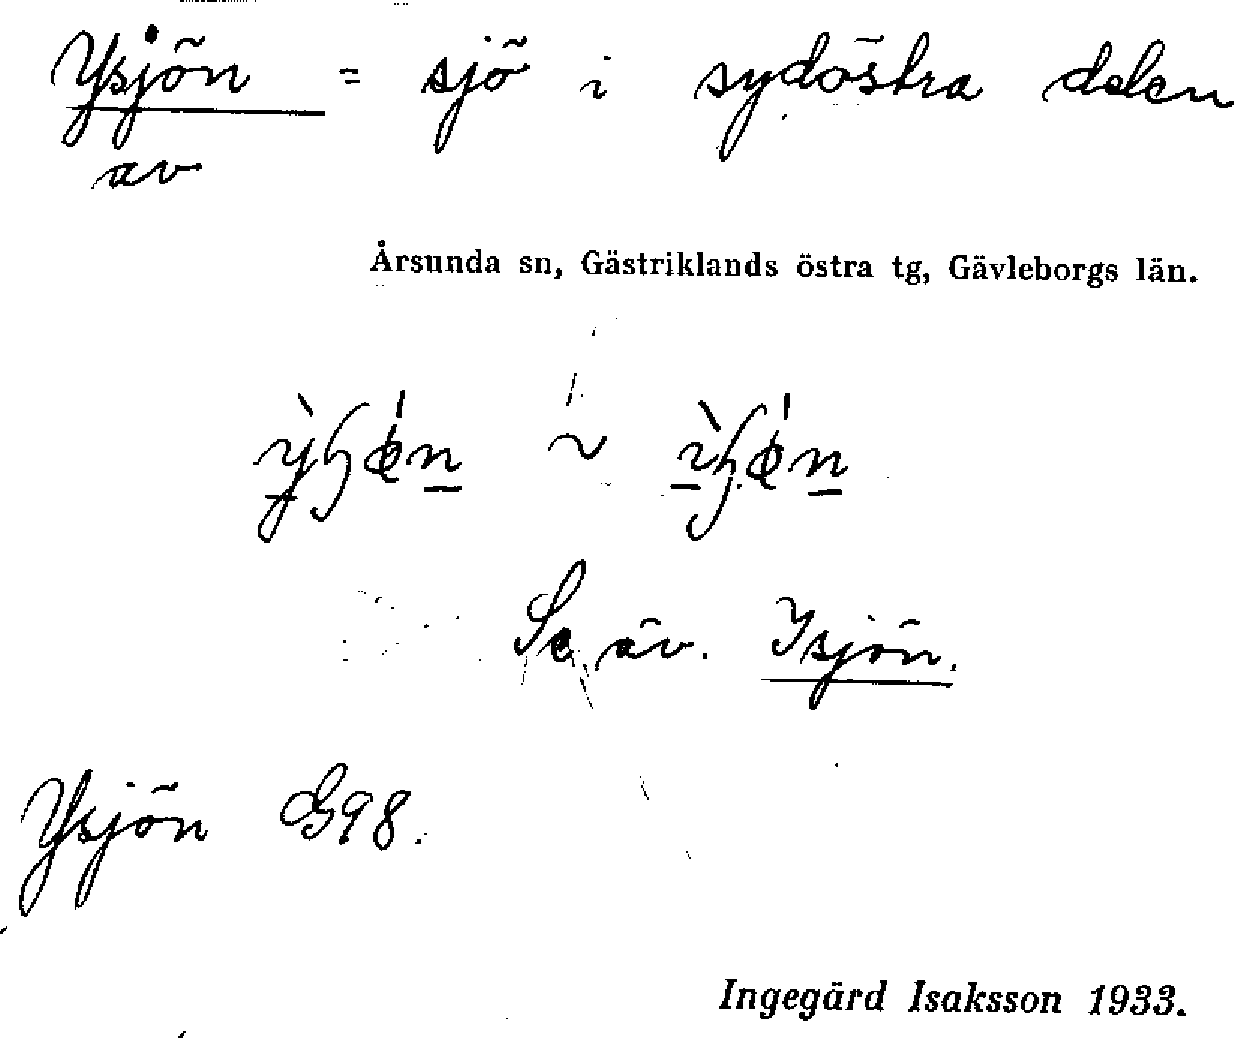 Ysjön = sjö i sydöstra delen
av
Årsunda sn, Gästriklands östra tg, Gävleborgs län.
~
Se äv. Isjön.
Ysjön G98.
Ingegärd Isaksson 1933.